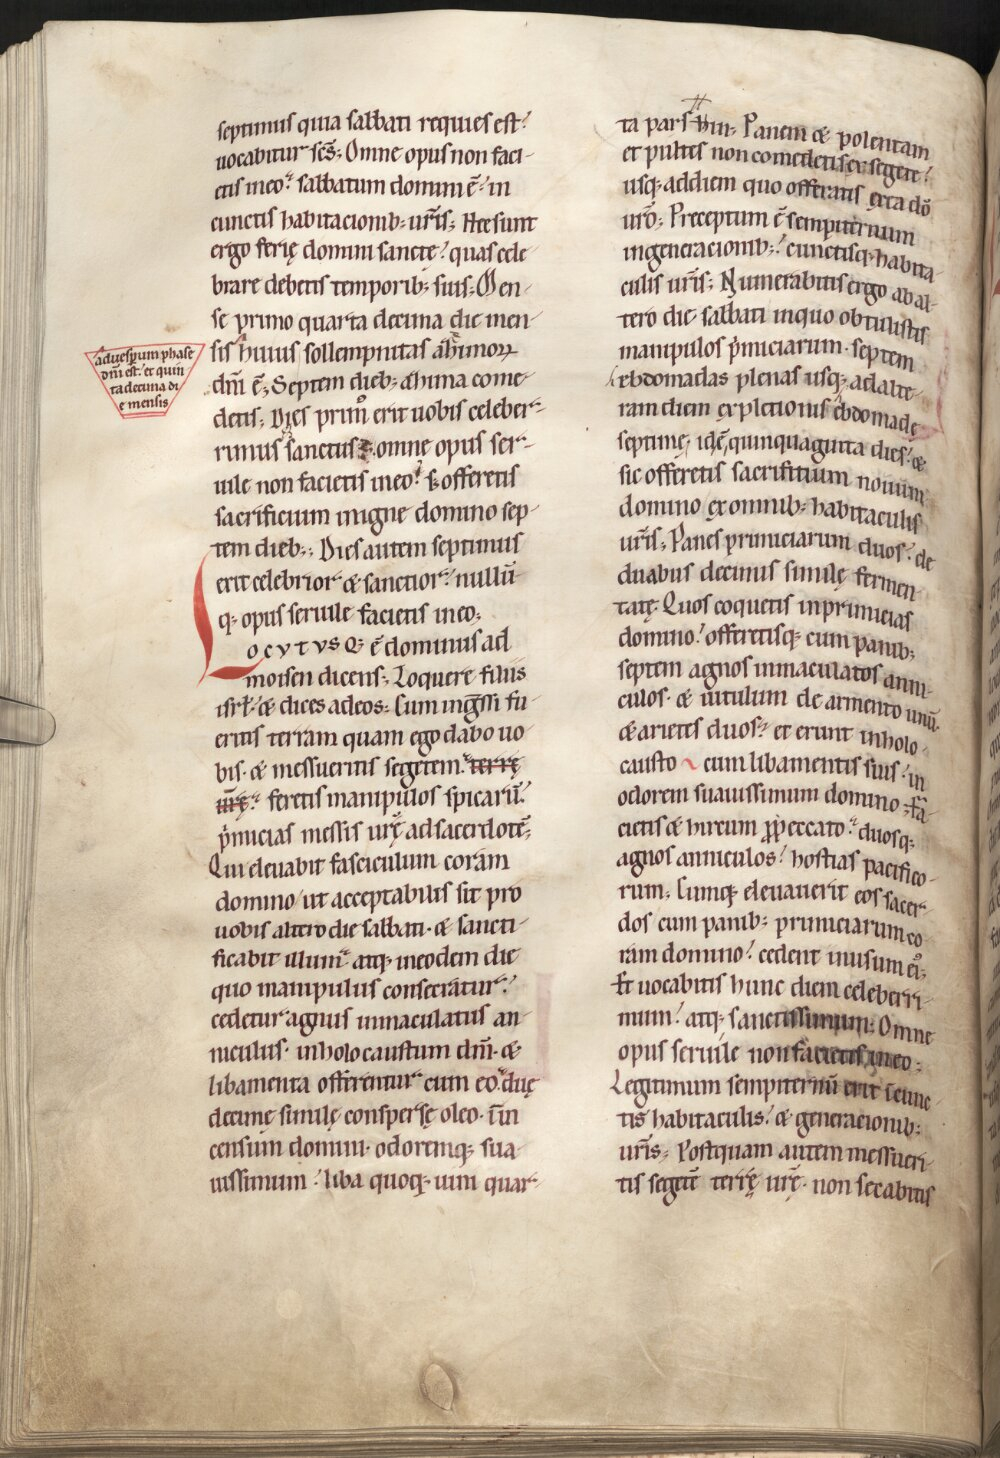 septimus quia sabbati requies est:
uocabitur scs̄; Omne opus non faci-
etis in eo: sabbatum domini ē: in
cunctis habitacionib; uris̄; Hee sunt
ergo ferię domini sancte: quas cele
brare debetis temporib; suis; Men-
se primo quarta decima die men
sis huius sollempnitas
dnī ē; Septem dieb; come-
detis; Dies prim erit uobis celeber-
rimus sanctus; omne opus ser-
uile non facietis in eo: s; offeretis
sacrificium in igne domino sep-
tem dieb;; Dies autem septimus
erit celebrior & sanctior: nullū
q; opus seruile facietis in eo;
Locutusq; ē dominus ad
moisen dicens; Loquere filiis
isrł & dices ad eos; Cum ingssi fu
eritis terram quam ego dabo uo
bis. & messueritis segetem. terrę
urę̄: feretis manipulos spicarū:
pͥmicias messis urę̄ ad sacerdotē;
Qui eleuabit fasciculum coram
domino ut acceptabilis sit pro
uobis altero die sabbati. & sancti-
ficabit illum: atq; in eodem die
quo manipulus consecratur:
cedetur agnus immaculatus an-
niculus. in holocaustum dnī. &
libamenta offerentur cum eo. duę
decimę similę consperse oleo. in in
censum domini. odoremq; sua-
uissimum: liba quoq; uini quar-
aduesperum phase
dnī est. et quin
ta decima di
e mensis
ta pars hin; Panem & polentam
et pultes non comedetis ex segete:
usq; ad diem quo offeratis ex ea dō
urō; Preceptum ē sempiternum
in generacionib;: cunctisq; habita-
culis uris̄; Numerabitis ergo ab al-
tero die sabbati in quo obtulistis
manipulos pͥmiciarum. septem
ebdomadas plenas usq; ad alte-
ram diem expletionis ebdomadę
septimę. idē quinquaginta dies: &
sic offeretis sacrifitium nouum
domino ex omnib; habitaculis
uris̄; Panes primiciarum duos: de
duabus decimis similę fermen-
tatę. Quos coquetis in primicias
domino: offeretisq; cum panib;
septem agnos inmaculatos anni-
culos. & uitulum de armento unū.
& arietes duos: et erunt in holo-
causto cum libamentis suis: in
odorem suauissimum domino; Fa-
cietis & hircum p peccato: duosq;
agnos anniculos: hostias pacifico-
rum; Cumq; eleuauerit eos sacer-
dos cum panib; primiciarum co
ram domino: cedent in usum ei;
Et uocabitis hunc diem celeberri-
mum: atq; sanctissimum; Omne
opus seruile non facietis in eo;
Legitimum sempiternū erit i cunc
tis habitaculis: & generacionib;
uris̄; Postquam autem messueri-
tis segetē terrę urę̄. non secabitis